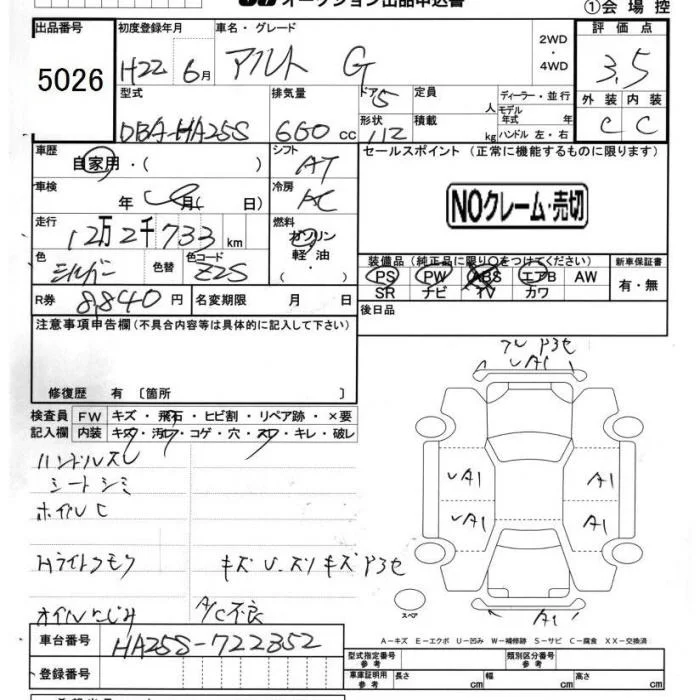 オークション出品申込書
①会場控
出品番号 初度登録年月 車名・グレード 2WD・4WD 評価点
5026 H22 6月 アルト G 3.5
型式 排気量 ドア 5 定員 人 ディーラー・並行 外装 内装
DBA-HA25S 660cc 形状 積載 kg モデル年式 年 ハンドル 左・右 C C
車歴 自家用・( ) シフト AT セールスポイント (正常に機能するものに限ります)
車検 年 月( 日) 冷房 AC
NOクレーム・売切
走行 12万2千733km 燃料 ガソリン 軽油・( )
色 シルバー 色替 色コード Z2S
装備品 (純正品に限り○をつけてください) 新車保証書
PS PW ABS エアB AW 有・無
SR ナビ TV カワ
R券 8,840円 名変期限 月 日
後日品
注意事項申告欄(不具合内容等は具体的に記入して下さい)
修復歴 有 〔箇所 〕
検査員 FW キズ・飛石・ヒビ割・リペア跡・×要
記入欄 内装 キズ・汚れ・コゲ・穴・スレ・キレ・破レ
ハンドルスレ
シートシミ
ホイルC
Hライトクモリ
オイルにじみ A/C不良
UA1
UA1 A1
UA1 A1
A1
スペア
A－キズ E－エクボ U－凹み W－補修跡 S－サビ C－腐食 XX－交換済
車台番号 HA25S-722352
登録番号
型式指定番号 参考 類別区分番号 参考
車庫証明用 参考 長さ cm 幅 cm 高さ cm